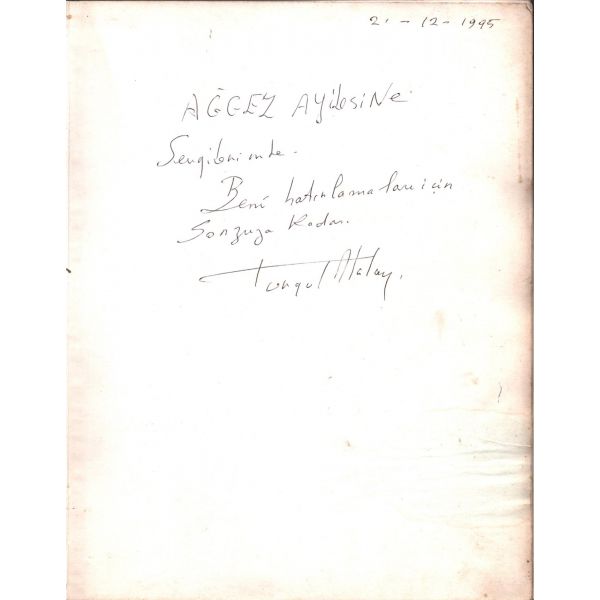 21-12-1995
AĞGEZ AYilesiNe
Sevgilerimle.
Beni hatırlamaları için
Sonzuza Kadar.
Atalay.